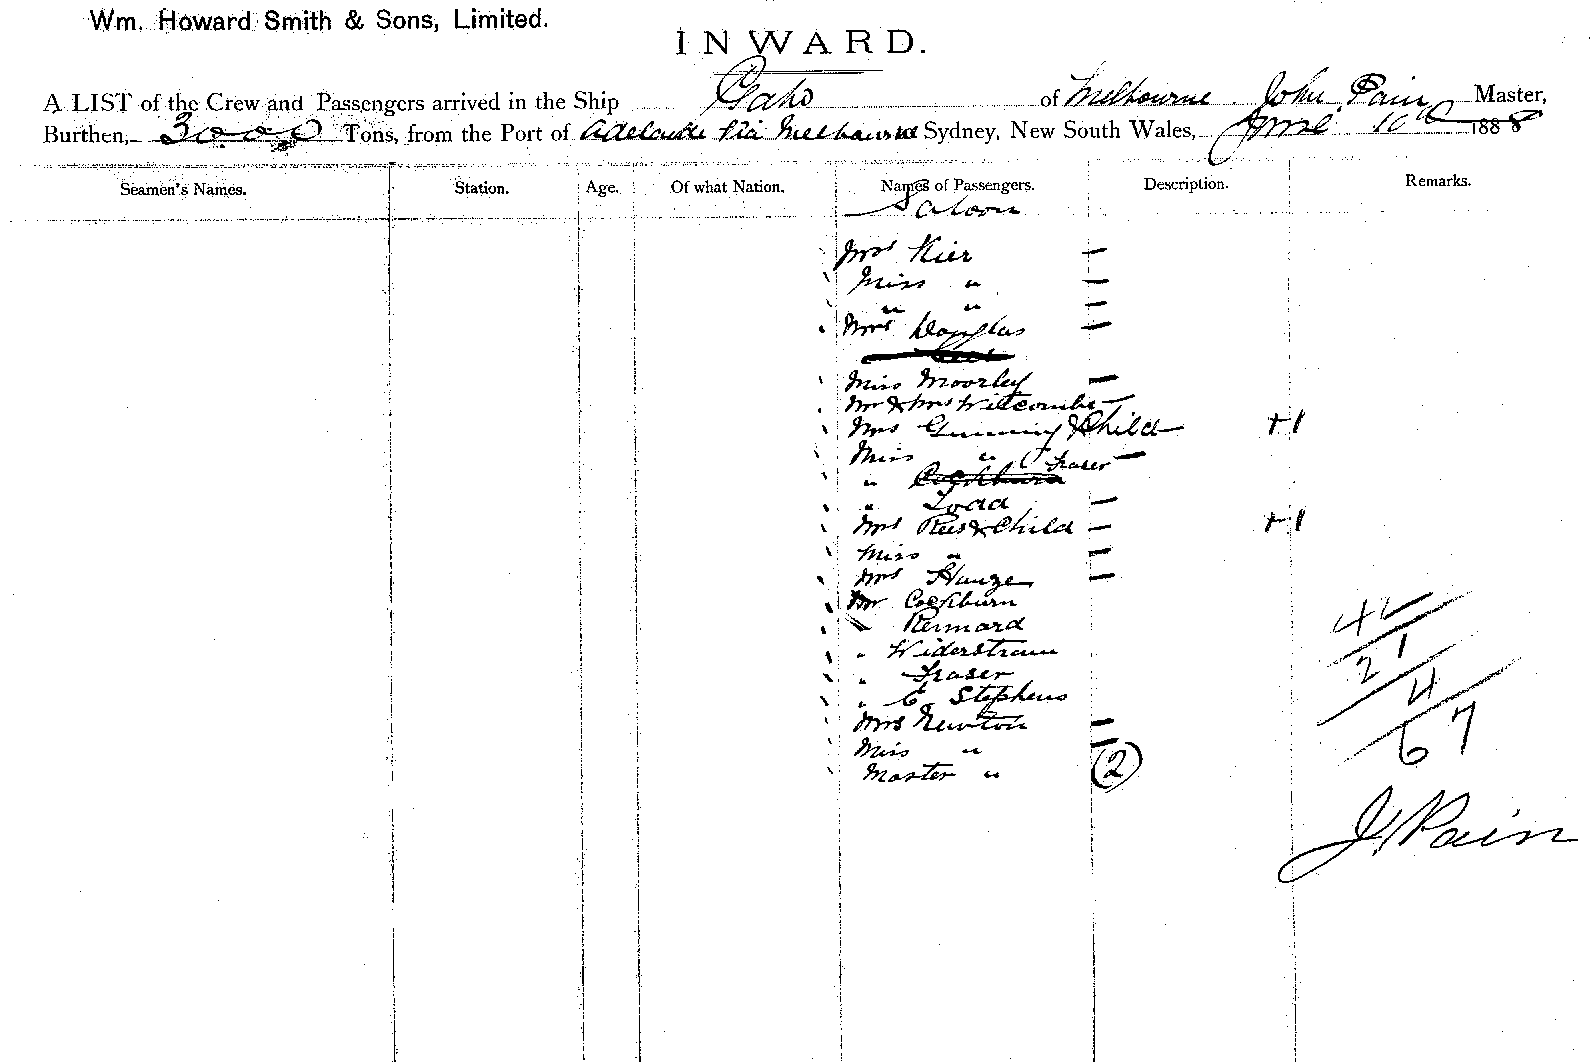 Wm. Howard Smith & Sons, Limited.
INWARD.
A LIST of the Crew and Passengers arrived in the Ship Gabo of Melbourne John Pain Master,
Burthen, 3000 Tons, from the Port of Adelaide Via Melbourne Sydney, New South Wales, June 10th 1888
Seamen's Names. Station. Age. Of what Nation. Names of Passengers. Description. Remarks.
Saloon
Mrs Kier —
Miss " —
" " —
Mrs Douglas —
Miss Moorley —
Mr & Mrs Witcombe —
Mrs Gunning & Child — +1
Miss " —
" Cockburn Fraser
" Todd —
Mrs Rees & Child — +1
Miss " —
Mrs Hauge —
Mr Cockburn
" Rennard
" Widerstram
" Fraser
" C Stephens
Mrs Newton —
Miss " —
Master " 2
42
21
4
67
J Pain